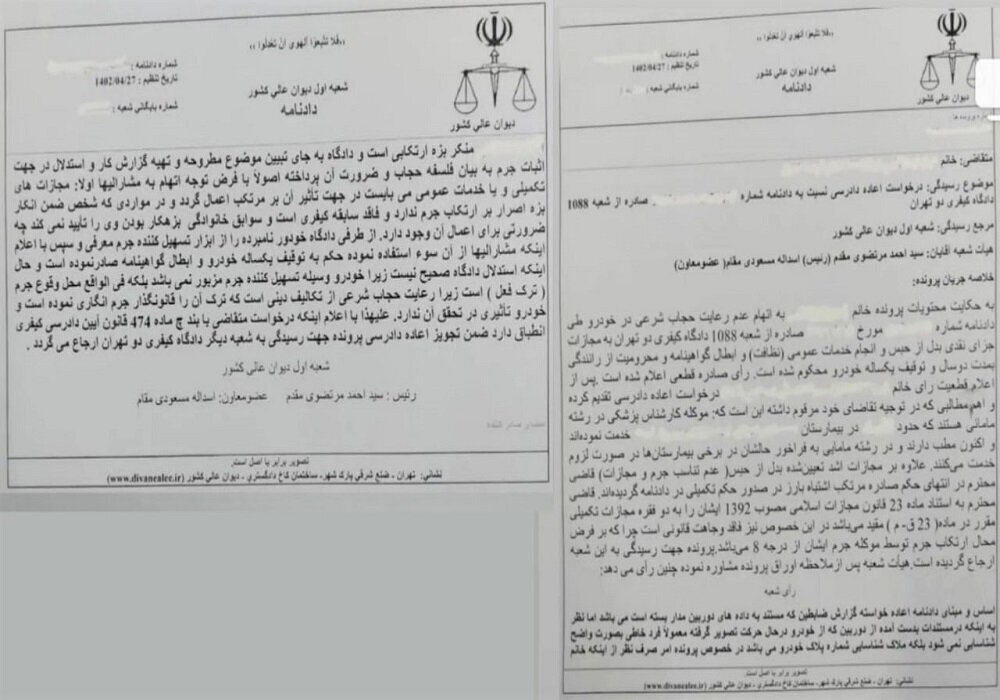 ،،فلا تتبعوا الهوی ان تعدلوا ،،
دیوان عالی کشور
شماره دادنامه :
تاریخ تنظیم : 1402/04/27
شماره بایگانی شعبه :
شعبه اول دیوان عالی کشور
دادنامه
متقاضی: خانم
موضوع رسیدگی: درخواست اعاده دادرسی نسبت به دادنامه شماره صادره از شعبه 1088
دادگاه کیفری دو تهران
مرجع رسیدگی: شعبه اول دیوان عالی کشور
هیأت شعبه آقایان: سید احمد مرتضوی مقدم (رئیس) اسداله مسعودی مقام( عضومعاون)
خلاصه جریان پرونده:
به حکایت محتویات پرونده خانم به اتهام عدم رعایت حجاب شرعی در خودرو طی
دادنامه شماره مورخ صادره از شعبه 1088 دادگاه کیفری دو تهران به مجازات
جزای نقدی بدل از حبس و انجام خدمات عمومی (نظافت) و ابطال گواهینامه و محرومیت از رانندگی
بمدت دوسال و توقیف یکساله خودرو محکوم شده است. رأی صادره قطعی اعلام شده است .پس از
اعلام قطعیت رای خانم درخواست اعاده دادرسی تقدیم کرده
و اهم مطالبی که در توجیه تقاضای خود مرقوم داشته این است که: موکله کارشناس پزشکی در رشته
مامائی هستند که حدود در بیمارستان خدمت نموده‌اند
و اکنون مطب دارند و در رشته مامایی به فراخور حالشان در برخی بیمارستان‌ها در صورت لزوم
خدمت می‌کنند. علاوه بر مجازات اشد تعیین‌شده بدل از حبس( عدم تناسب جرم و مجازات) قاضی
محترم در انتهای حکم صادره مرتکب اشتباه بارز در صدور حکم تکمیلی در دادنامه گردیده‌اند. قاضی
محترم به استناد ماده 23 قانون مجازات اسلامی مصوب 1392 ایشان را به دو فقره مجازات تکمیلی
مقرر در ماده( 23 ق- م ) مقید می‌باشد در این خصوص نیز فاقد وجاهت قانونی است چرا که بر فرض
محال ارتکاب جرم توسط موکله جرم ایشان از درجه 8 می‌باشد.پرونده جهت رسیدگی به این شعبه
ارجاع گردیده است.هیأت شعبه پس ازملاحظه اوراق پرونده مشاوره نموده چنین رأی می دهد:
رأی شعبه
اساس و مبنای دادنامه اعاده خواسته گزارش ضابطین که مستند به داده های دوربین مدار بسته است می باشد اما نظر
به اینکه درمستندات بدست آمده از دوربین که از خودرو درحال حرکت تصویر گرفته معمولاً فرد خاطی بصورت واضح
شناسایی نمی شود بلکه ملاک شناسایی شماره پلاک خودرو می باشد در خصوص پرونده امر صرف نظر از اینکه خانم
تصویر برابر با اصل است.
نشانی: تهران - ضلع شرقی پارک شهر- ساختمان کاخ دادگستری - دیوان عالی کشور (www.divanealee.ir)
،،فلا تتبعوا الهوی ان تعدلوا ،،
دیوان عالی کشور
شماره دادنامه :
تاریخ تنظیم : 1402/04/27
شماره بایگانی شعبه :
شعبه اول دیوان عالی کشور
دادنامه
منکر بزه ارتکابی است و دادگاه به جای تبیین موضوع مطروحه و تهیه گزارش کار و استدلال در جهت
اثبات جرم به بیان فلسفه حجاب و ضرورت آن پرداخته اصولاً با فرض توجه اتهام به مشارالیها اولا: مجازات های
تکمیلی و یا خدمات عمومی می بایست در جهت تأثیر آن بر مرتکب اعمال گردد و در مواردی که شخص ضمن انکار
بزه اصرار بر ارتکاب جرم ندارد و فاقد سابقه کیفری است و سوابق خانوادگی بزهکار بودن وی را تأیید نمی کند چه
ضرورتی برای اعمال آن وجود دارد. از طرفی دادگاه خودور نامبرده را از ابزار تسهیل کننده جرم معرفی و سپس با اعلام
اینکه مشارالیها از آن سوء استفاده نموده حکم به توقیف یکساله خودرو و ابطال گواهینامه صادرنموده است و حال
اینکه استدلال دادگاه صحیح نیست زیرا خودرو وسیله تسهیل کننده جرم مزبور نمی باشد بلکه فی الواقع محل وقوع جرم
( ترک فعل ) است زیرا رعایت حجاب شرعی از تکالیف دینی است که ترک آن را قانونگذار جرم انگاری نموده است و
خودرو تأثیری در تحقق آن ندارد. علیهذا با اعلام اینکه درخواست متقاضی با بند چ ماده 474 قانون آیین دادرسی کیفری
انطباق دارد ضمن تجویز اعاده دادرسی پرونده جهت رسیدگی به شعبه دیگر دادگاه کیفری دو تهران ارجاع می گردد .
شعبه اول دیوان عالی کشور
رئیس : سید احمد مرتضوی مقدم عضومعاون: اسداله مسعودی مقام
تصویر برابر با اصل است.
نشانی: تهران - ضلع شرقی پارک شهر- ساختمان کاخ دادگستری - دیوان عالی کشور (www.divanealee.ir)